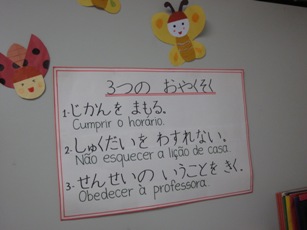 3つの おやくそく
1-じかんを まもる.
Cumprir o horário.
2-しゅくだいを わすれない.
Não esquecer a lição de casa.
3-せんせいの いうことを きく.
Obedecer à professora.